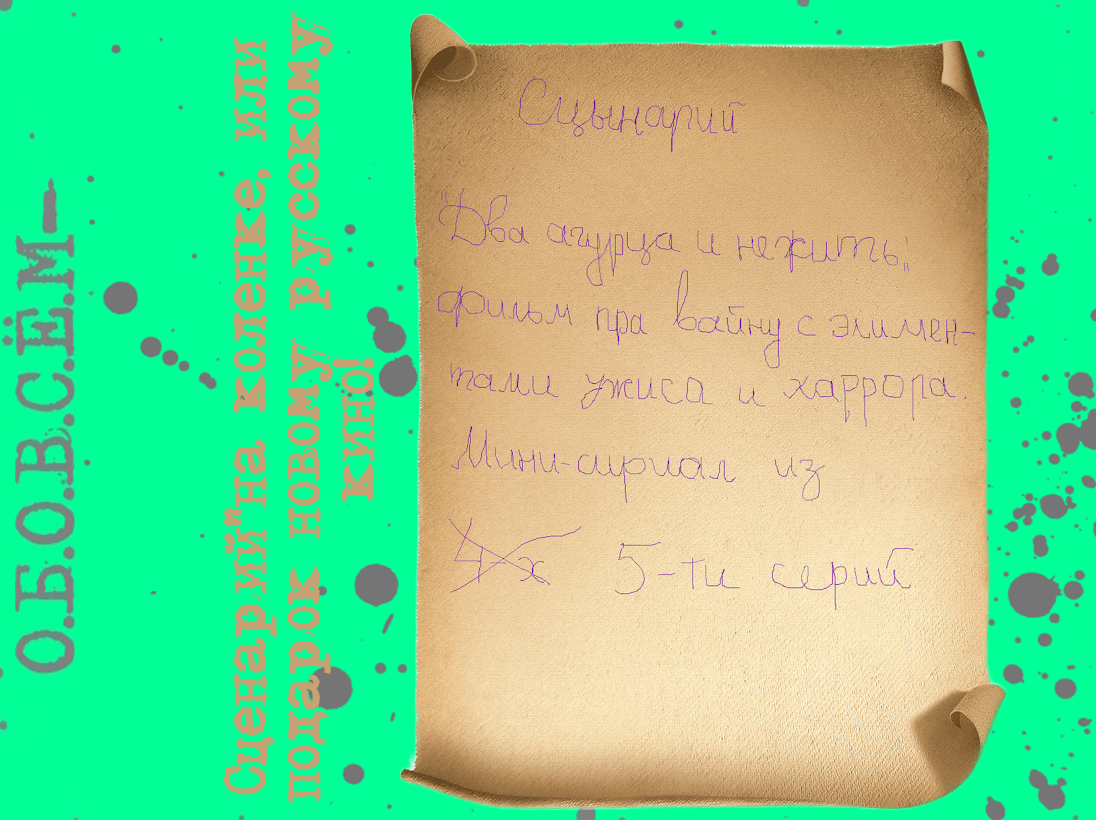 О.Б.О.В.С.Ё.М—
Сценарий"на коленке, или
подарок новому русскому
кино!
Сцынарий
"Два агурца и нежить",
фильм пра вайну с элимен-
тами ужиса и харрора.
Мини-сириал из
4-х 5-ти серий